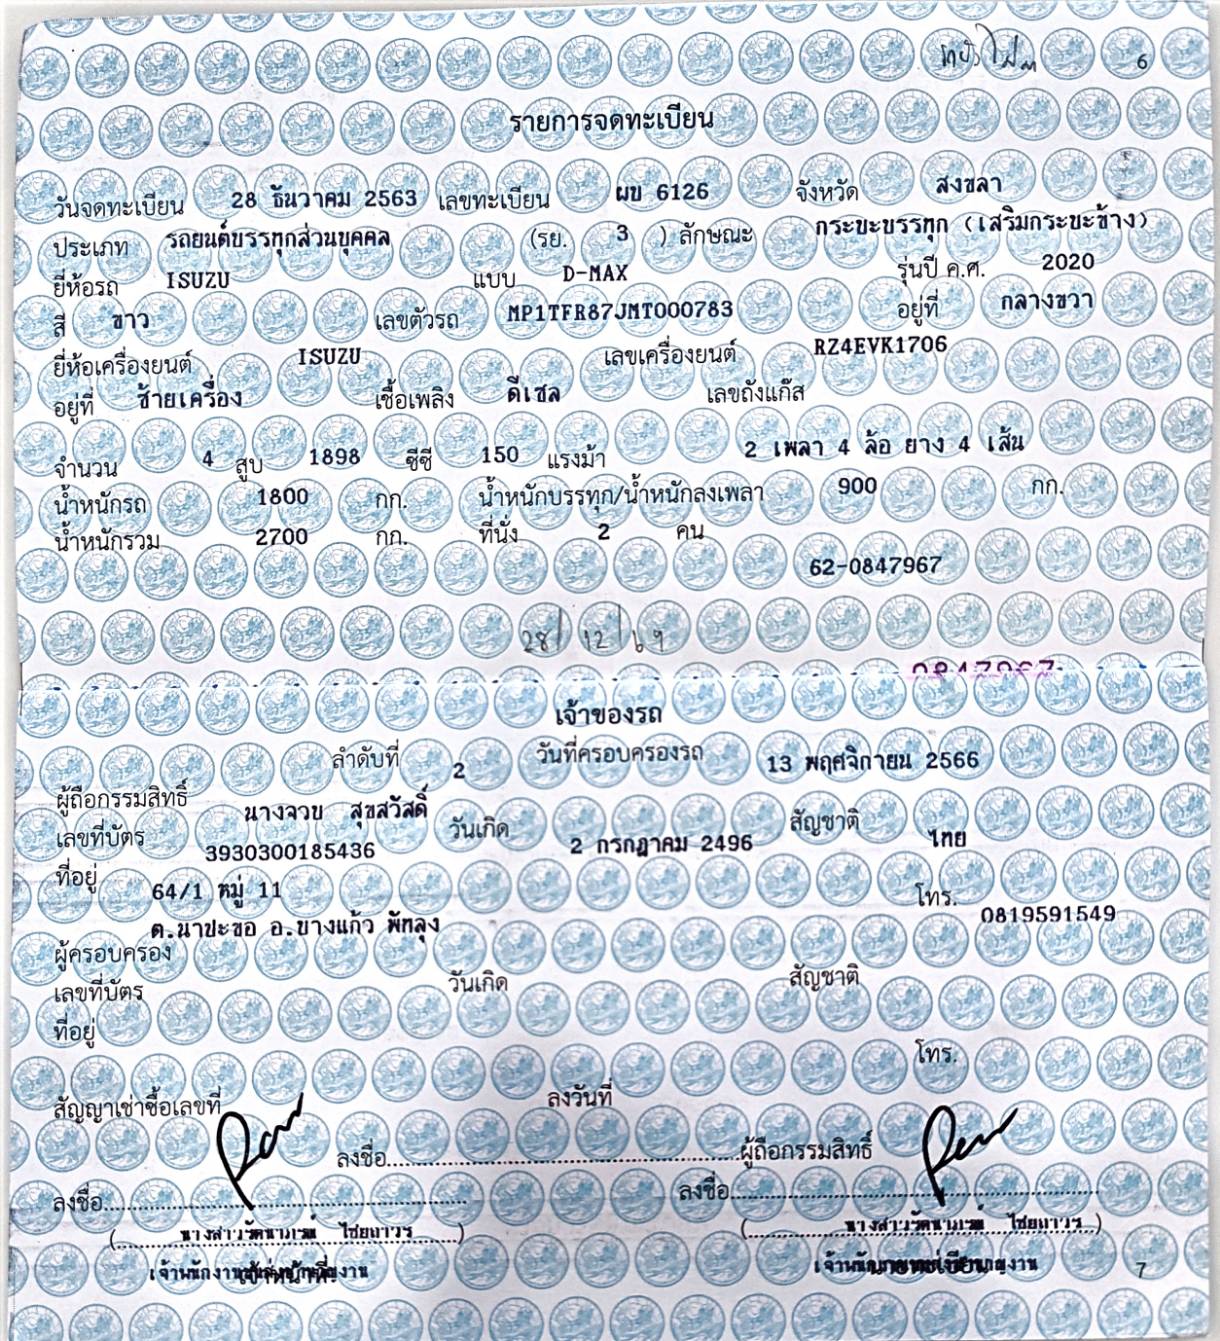 6
รายการจดทะเบียน
วันจดทะเบียน 28 ธันวาคม 2563 เลขทะเบียน ผข 6126 จังหวัด สงขลา
ประเภท รถยนต์บรรทุกส่วนบุคคล (รย. 3 ) ลักษณะ กระบะบรรทุก (เสริมกระบะข้าง)
ยี่ห้อรถ ISUZU แบบ D-MAX รุ่นปี ค.ศ. 2020
สี ขาว เลขตัวรถ MP1TFR87JMT000783 อยู่ที่ กลางขวา
ยี่ห้อเครื่องยนต์ ISUZU เลขเครื่องยนต์ RZ4EVK1706
อยู่ที่ ซ้ายเครื่อง เชื้อเพลิง ดีเซล เลขถังแก๊ส
จำนวน 4 สูบ 1898 ซีซี 150 แรงม้า 2 เพลา 4 ล้อ ยาง 4 เส้น
น้ำหนักรถ 1800 กก. น้ำหนักบรรทุก/น้ำหนักลงเพลา 900 กก.
น้ำหนักรวม 2700 กก. ที่นั่ง 2 คน
62-0847967
28/12/69
0847967
เจ้าของรถ
ลำดับที่ 2 วันที่ครอบครองรถ 13 พฤศจิกายน 2566
ผู้ถือกรรมสิทธิ์ นางจวบ สุขสวัสดิ์
เลขที่บัตร 3930300185436 วันเกิด 2 กรกฎาคม 2496 สัญชาติ ไทย
ที่อยู่ 64/1 หมู่ 11 โทร. 0819591549
ต.นาปะขอ อ.บางแก้ว พัทลุง
ผู้ครอบครอง
เลขที่บัตร วันเกิด สัญชาติ
ที่อยู่
โทร.
สัญญาเช่าซื้อเลขที่ ลงวันที่
ลงชื่อ ผู้ถือกรรมสิทธิ์
ลงชื่อ ลงชื่อ
(นางสาวรัตนาภรณ์ ไชยถาวร) (นางสาวรัตนาภรณ์ ไชยถาวร)
7